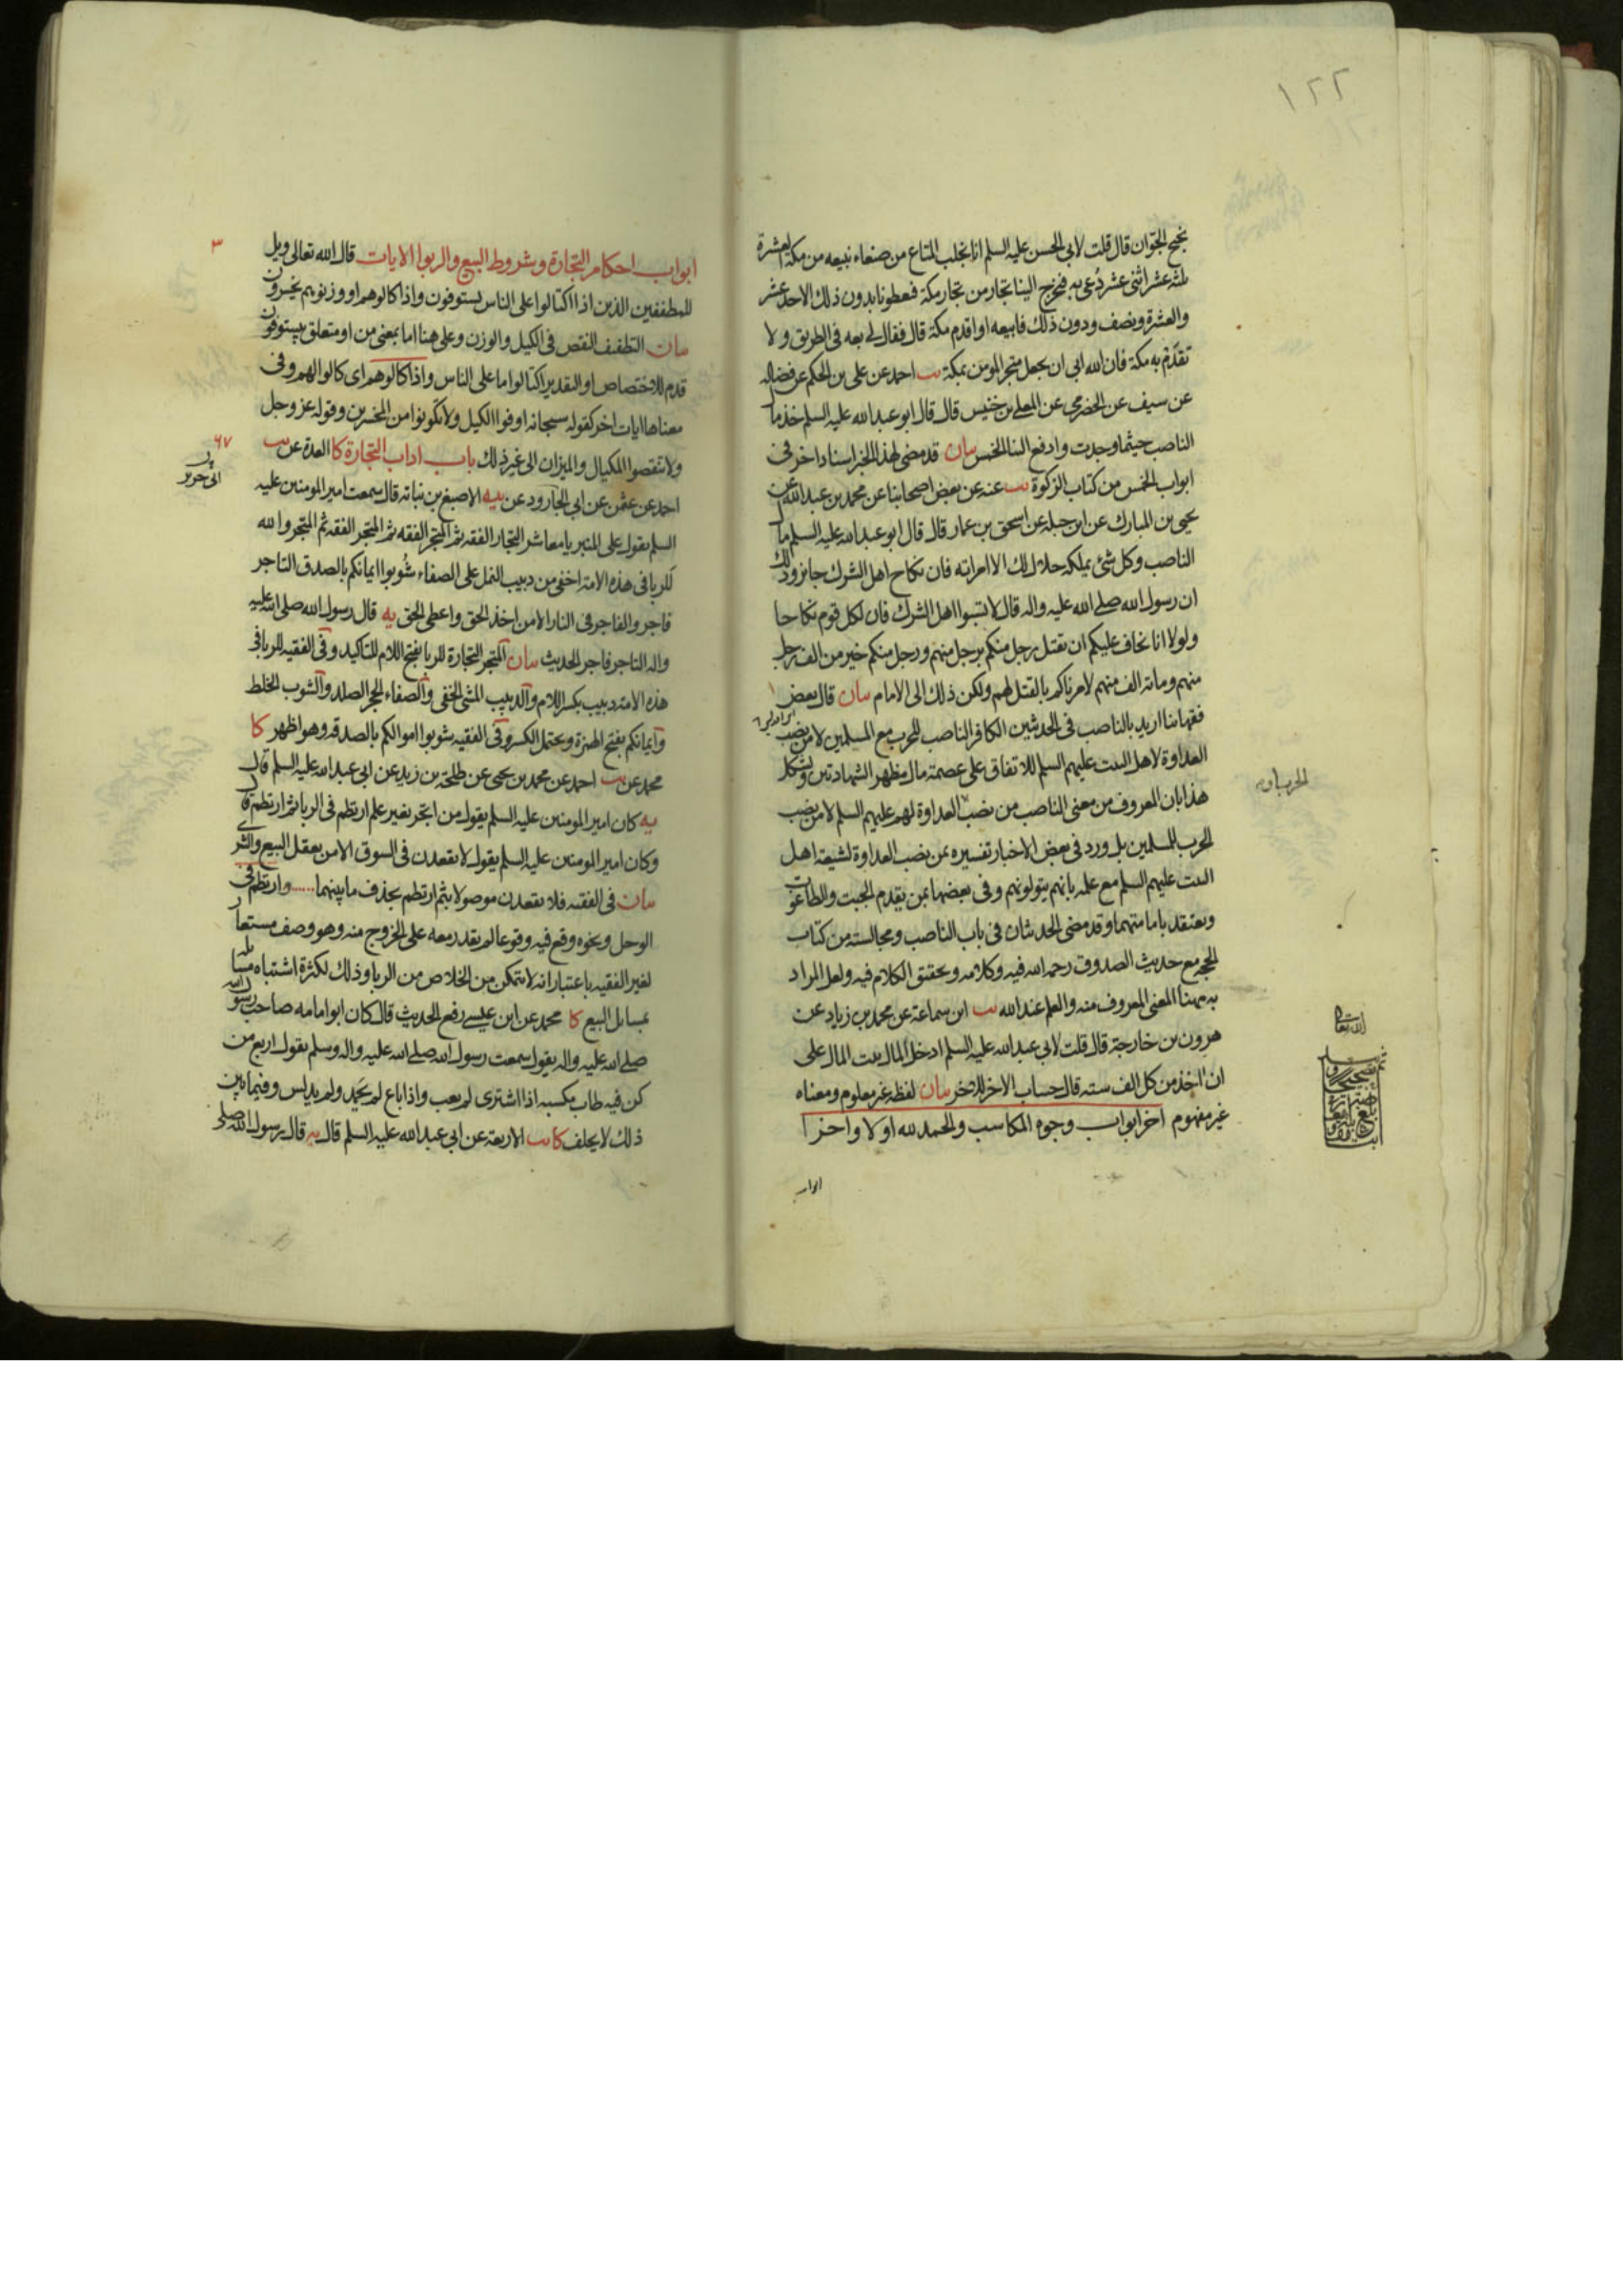 ١٢٢
نجح الجوان قال قلت لابي الحسن عليه السلم انا نجلب المتاع من صنعاء نبيعه من مكة العشرة
ثلثه عشر اثنى عشر دُعى به فنخرج الينا تجار من تجار مكة فيعطونا بدون ذلك الاحد عشر
والعشرة ونصف ودون ذلك فابيعه او اقدم مكة قال فقال لى بعه فى الطريق ولا
تقدَم به مكة فان الله ابى ان يجعل متجر المومن بمكة يب احمد عن على بن الحكم عن فضاله
عن سيف عن الحضرمى عن المعلى بن خنيس قال قال ابو عبد الله عليه السلم خذ مال
الناصب حيثما وجدت وادفع الينا الخمس بيان قد مضى لهذا الخبر اسناد اخر فى
ابواب الخمس من كتاب الزكوة يب عنه عن بعض اصحابنا عن محمد بن عبد الله عن
يحيى بن المبارك عن ابن جبله عن اسحق بن عمار قال قال ابو عبد الله عليه السلم مال
الناصب وكل شئ يملكه حلال لك الا امراته فان نكاح اهل الشرك جايز وذلك
ان رسول الله صلى الله عليه واله قال لا تسبوا اهل الشرك فان لكل قوم نكاحا
ولولا انا نخاف عليكم ان تقتل رجل منكم برجل منهم ورجل منكم خير من الف رجل
منهم ومائة الف منهم لامرناكم بالقتل لهم ولكن ذلك الى الامام بيان قال بعض
فقهائنا اريد بالناصب فى الحديثين الكافر الناصب للحرب مع المسلمين لا من نصب
العداوة لاهل البيت عليهم السلم للاتفاق على عصمة مال مظهر الشهادتين ويشكل
هذا بان المعروف من معنى الناصب من نصب العداوة لهم عليهم السلم لا من نصب
الحرب للمسلمين بل ورد فى بعض الاخبار تفسيره بمن نصب العداوة لشيعة اهل
البيت عليهم السلم مع علمه بانهم يتولونهم وفى بعضها بمن يقدم الجبت والطاغوت
ويعتقد بامامتهما وقد مضى الحديثان فى باب الناصب ومجالسته من كتاب
الحجه مع حديث الصدوق رحمه الله فيه وكلامه وتحقيق الكلام فيه ولعل المراد
به ههنا المعنى المعروف منه والعلم عند الله يب ابن سماعة عن محمد بن زياد عن
هرون بن خارجة قال قلت لابى عبد الله عليه السلم ادخل المال بيت المال على
ان اخذ من كل الف سته قال حساب الاخر للاخر بيان لفظه غير معلوم ومعناه
غير مفهوم اخر ابواب وجوه المكاسب والحمد لله اولا واخرا
ابواب
٣
ابواب احكام التجارة وشروط البيع والربوا الايات قال الله تعالى ويل
للمطففين الذين اذا اكتالوا على الناس يستوفون واذا كالوهم او وزنوهم يخسرون
بيان التطفيف النقص فى الكيل والوزن وعلى هنا اما بمعنى من او متعلق بيستوفون
قدم للاختصاص او التقدير اكتالوا ما على الناس واذا كالوهم اى كالوا لهم وفى
معناها ايات اخر كقوله سبحانه اوفوا الكيل ولا تكونوا من المخسرين وقوله عز وجل
ولا تنقصوا المكيال والميزان الى غير ذلك باب اداب التجارة كا العدة عن يب
٦٧
احمد عن عثمن عن ابى الجارود عن يه الاصبغ بن نباته قال سمعت امير المومنين عليه
السلم يقول على المنبر يا معاشر التجار الفقه ثم المتجر الفقه ثم المتجر الفقه ثم المتجر والله
للربا فى هذه الامة اخفى من دبيب النمل على الصفاء شُوبوا ايمانكم بالصدق التاجر
فاجر والفاجر فى النار الا من اخذ الحق واعطى الحق يه قال رسول الله صلى الله عليه
واله التاجر فاجر الحديث بيان المتجر التجارة للربا بفتح اللام للتاكيد وفى الفقيه للربا فى
هذه الامة دبيب بكسر اللام والدبيب المشى الخفى والصفاء الحجر الصلد والشوب الخلط
وايمانكم بفتح الهمزة ويحتمل الكسر وفى الفقيه شوبوا اموالكم بالصدقه وهو اظهر كا
محمد عن يب احمد عن محمد بن يحيى عن طلحة بن زيد عن ابى عبد الله عليه السلم قال
يه كان امير المومنين عليه السلم يقول من اتجر بغير علم ارتطم فى الربا ثم ارتطم قال
وكان امير المومنين عليه السلم يقول لا يقعدن فى السوق الا من يعقل البيع والشرى
بيان فى الفقيه فلا يقعدن موصولا بثم ارتطم بحذف ما بينهما ...... وارتطم فى
الوحل ونحوه وقع فيه وقوعا لم يقدر معه على الخروج منه وهو وصف مستعار
لغير الفقيه باعتبار انه لا يتمكن من الخلاص من الربا وذلك لكثرة اشتباه مسايله
بمسايل البيع كا محمد عن ابن عيسى رفع الحديث قال كان ابو امامه صاحب رسول الله
صلى الله عليه واله يقول سمعت رسول الله صلى الله عليه واله وسلم يقول اربع من
كن فيه طاب مكسبه اذا اشترى لم يعب واذا باع لم يحمد ولم يدلس وفيما بين
ذلك لا يحلف كا يب الاربعة عن ابى عبد الله عليه السلم قال يه قال رسول الله صلى